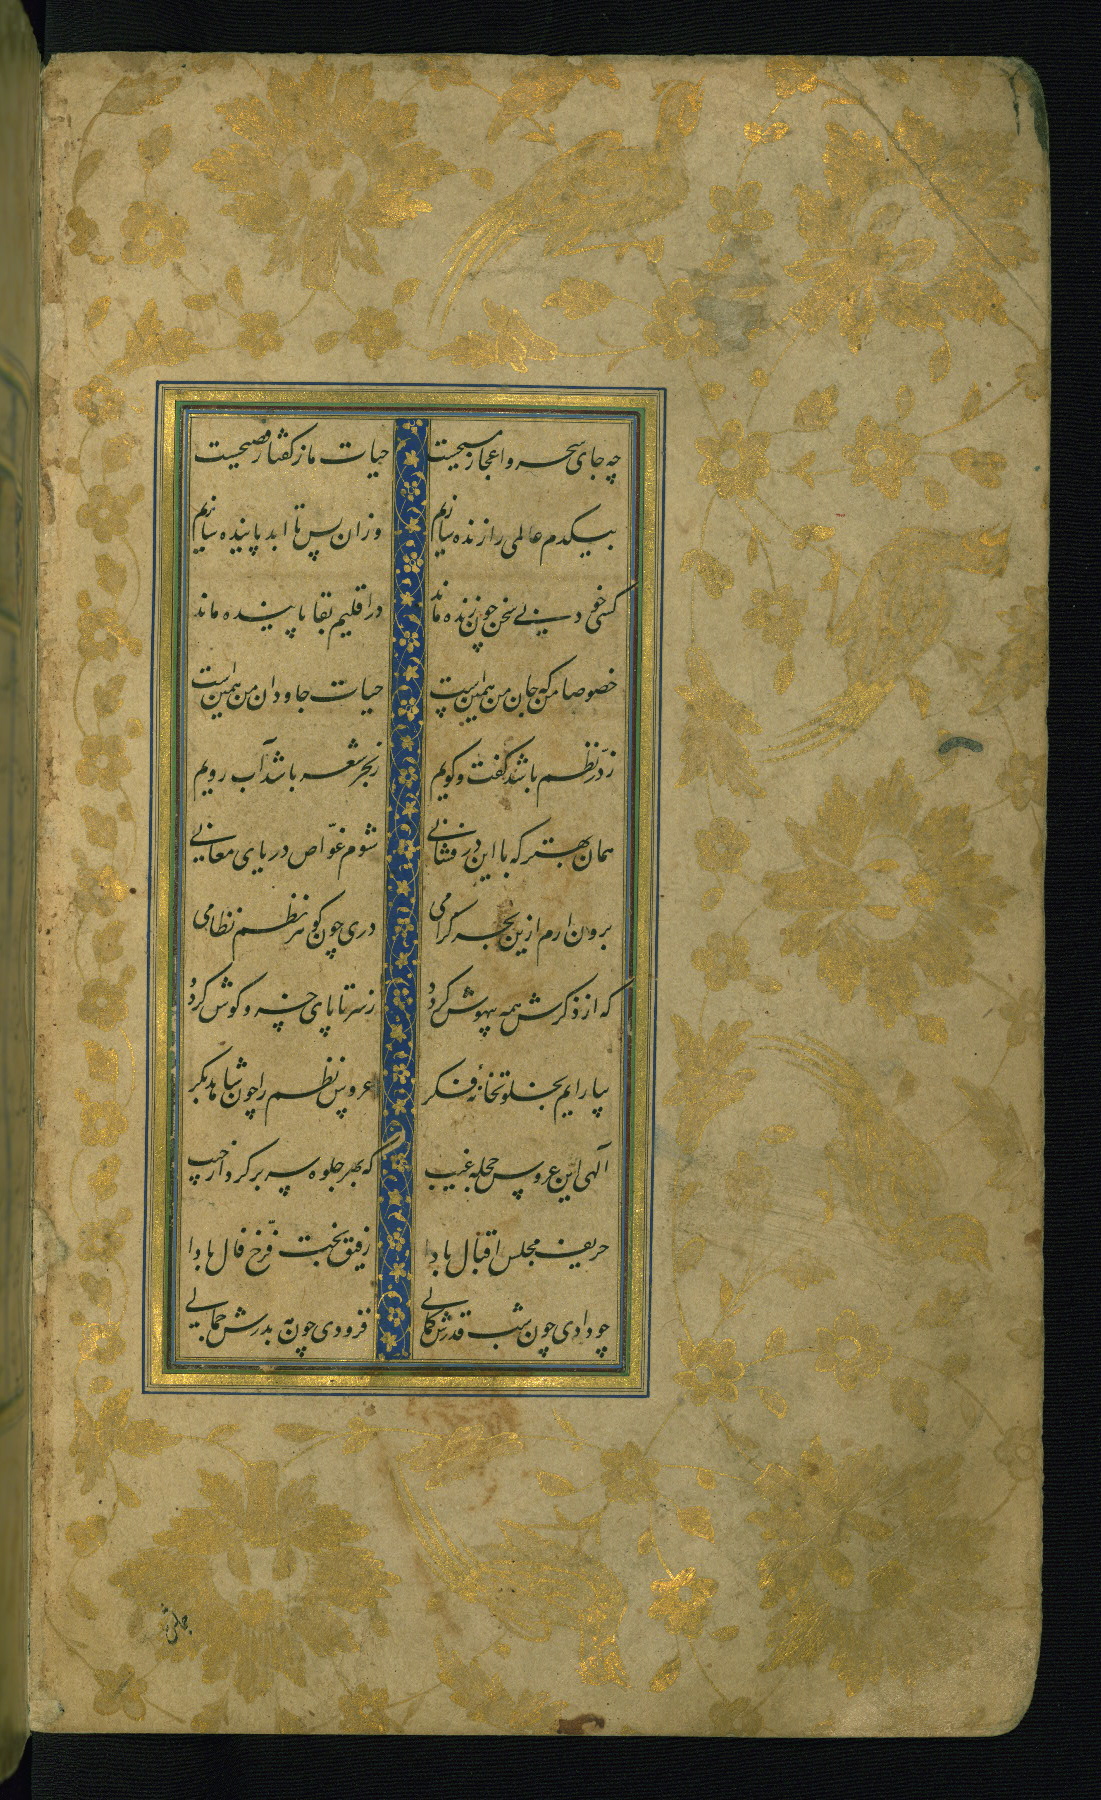 چه جای سحر و اعجاز مسیحیست حیات ما ز گفتار فصیحیست
بیکدم عالمی را زنده سازیم وزان پس تا ابد پاینده سازیم
کسی خود بی سخن چون زنده ماند در اقلیم بقا پاینده ماند
خصوصا من که جان من همین است حیات جاودان من همین است
ز در نظم باشد گفت و گویم ز بحر شعر باشد آب رویم
همان بهتر که با این در فشانی شوم غوّاص دریای معانی
برون ارم ازین بحر گرامی دری چون گوهر نظم نظامی
که از ذکرش همه بیهوش گردد ز سر تا پای چشم و گوش گردد
بیارایم بخلوتخانهٔ فکر عروس نظم را چون شاهد بکر
الهی این عروس حجله غیب که بهر جلوه سر بر کرد از جیب
حریف مجلس اقبال بادا رفیق بخت فرّخ فال بادا
چو دادی چون شب قدرش کمالی فزودی چون مه بدرش جمالی
جمالش